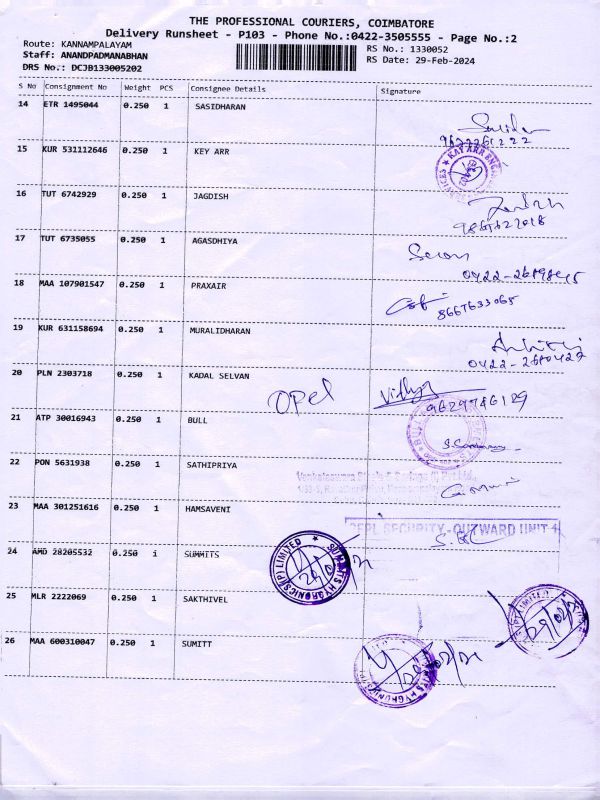 THE PROFESSIONAL COURIERS, COIMBATORE
Delivery Runsheet - P103 - Phone No.:0422-3505555 - Page No.:2
Route: KANNAMPALAYAM RS No.: 1330052
Staff: ANANDPADMANABHAN RS Date: 29-Feb-2024
DRS No.: DCJB133005202
S No Consignment No Weight PCS Consignee Details Signature
14 ETR 1495044 0.250 1 SASIDHARAN
15 KUR 531112646 0.250 1 KEY ARR
16 TUT 6742929 0.250 1 JAGDISH
17 TUT 6735055 0.250 1 AGASDHIYA
18 MAA 107901547 0.250 1 PRAXAIR
8667633065
19 KUR 631158694 0.250 1 MURALIDHARAN
20 PLN 2303718 0.250 1 KADAL SELVAN
Opel Vidhya
9629746129
21 ATP 30016943 0.250 1 BULL
22 PON 5631938 0.250 1 SATHIPRIYA
23 MAA 301251616 0.250 1 HAMSAVENI
SEPL SECURITY-OUTWARD UNIT
24 AMD 28205532 0.250 1 SUMMITS
SUMMITS HYGRONICS (P) LIMITED
25 MLR 2222069 0.250 1 SAKTHIVEL
29/02/2
26 MAA 600310047 0.250 1 SUMITT